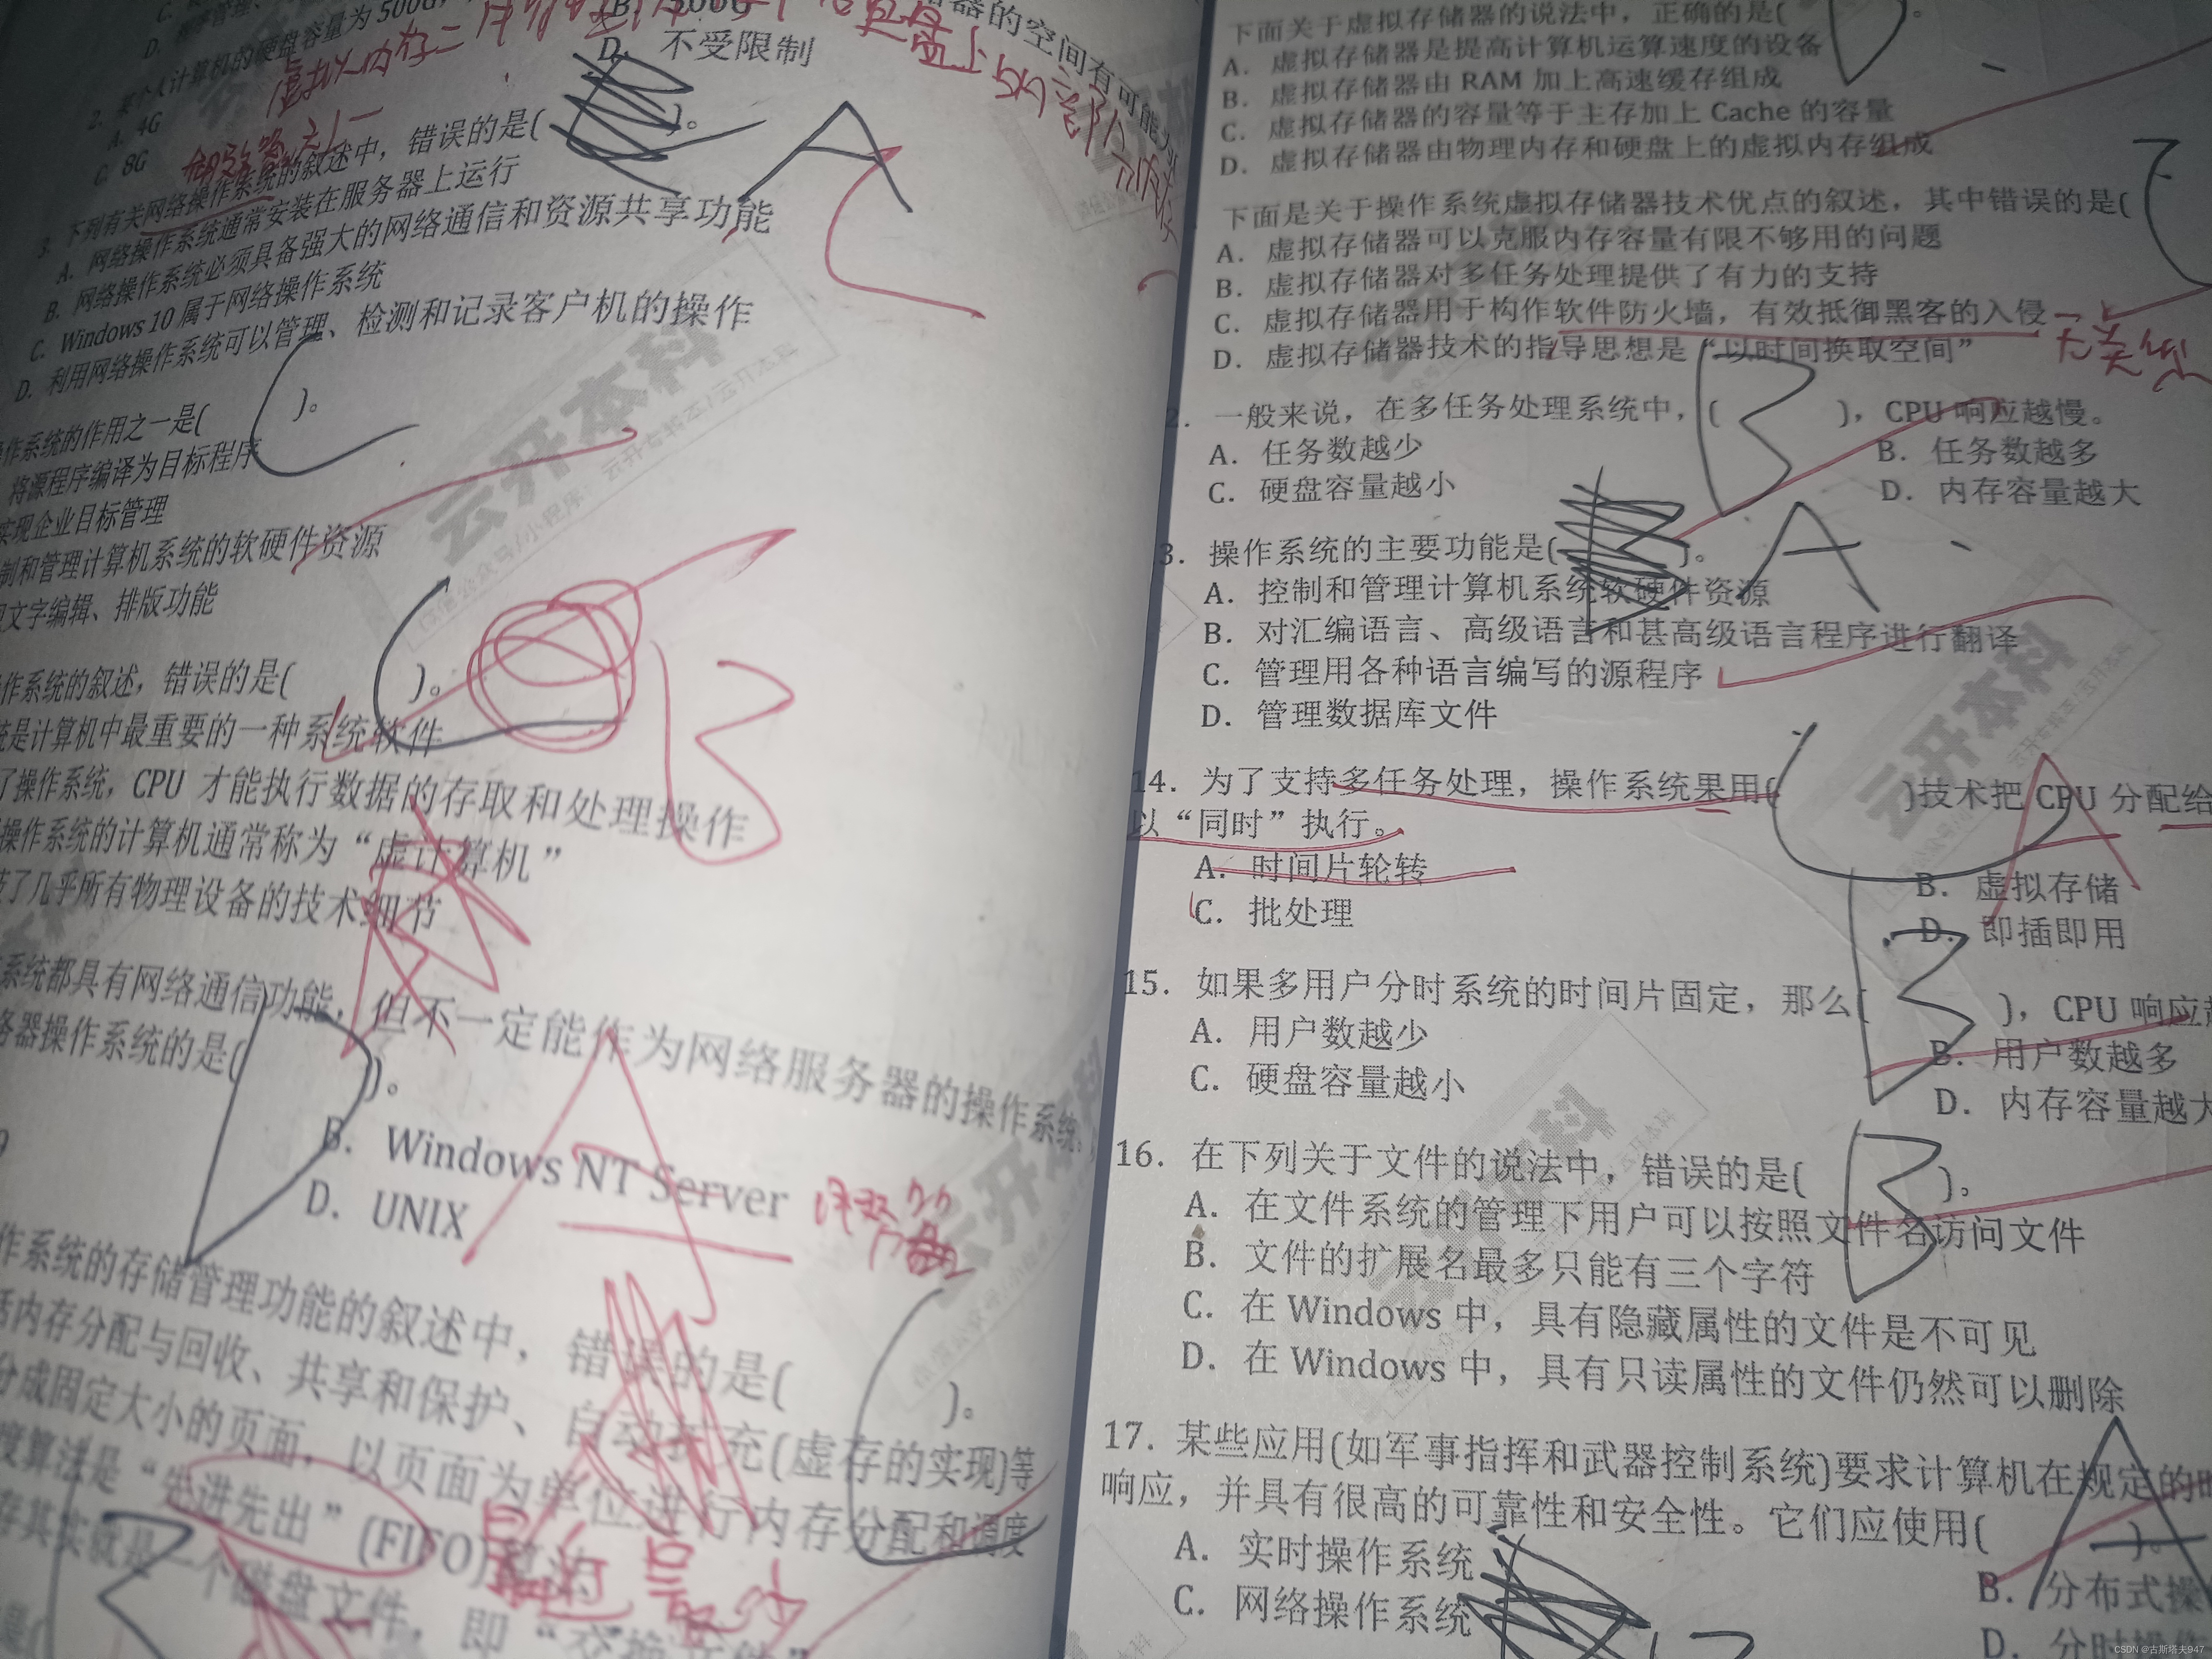 2. 某个人计算机的硬盘容量为500G,
器的空间有可能为
A. 4G
B. 500G
C. 8G
D. 不受限制
3. 下列有关网络操作系统的叙述中，错误的是( )。
A. 网络操作系统通常安装在服务器上运行
B. 网络操作系统必须具备强大的网络通信和资源共享功能
C. Windows 10 属于网络操作系统
D. 利用网络操作系统可以管理、检测和记录客户机的操作
A
C
操作系统的作用之一是( C )。
将源程序编译为目标程序
实现企业目标管理
制和管理计算机系统的软硬件资源
文字编辑、排版功能
作系统的叙述，错误的是( C )。
B
统是计算机中最重要的一种系统软件
了操作系统，CPU 才能执行数据的存取和处理操作
操作系统的计算机通常称为“虚计算机”
了几乎所有物理设备的技术细节
系统都具有网络通信功能，但不一定能作为网络服务器的操作系统。
务器操作系统的是( D )。
A
B. Windows NT Server
服务器
D. UNIX
作系统的存储管理功能的叙述中，错误的是( C )。
括内存分配与回收、共享和保护、自动扩充(虚存的实现)等
分成固定大小的页面，以页面为单位进行内存分配和调度
度算法是“先进先出”(FIFO)算法
最近最少
存其实就是一个磁盘文件，即“交换文件”
下面关于虚拟存储器的说法中，正确的是( D )。
A. 虚拟存储器是提高计算机运算速度的设备
B. 虚拟存储器由 RAM 加上高速缓存组成
C. 虚拟存储器的容量等于主存加上 Cache 的容量
D. 虚拟存储器由物理内存和硬盘上的虚拟内存组成
下面是关于操作系统虚拟存储器技术优点的叙述，其中错误的是( C
A. 虚拟存储器可以克服内存容量有限不够用的问题
B. 虚拟存储器对多任务处理提供了有力的支持
C. 虚拟存储器用于构作软件防火墙，有效抵御黑客的入侵
无关
D. 虚拟存储器技术的指导思想是“以时间换取空间”
2. 一般来说，在多任务处理系统中，( B )，CPU 响应越慢。
A. 任务数越少
B. 任务数越多
C. 硬盘容量越小
D. 内存容量越大
3. 操作系统的主要功能是( )。 A
A. 控制和管理计算机系统软硬件资源
B. 对汇编语言、高级语言和甚高级语言程序进行翻译
C. 管理用各种语言编写的源程序
D. 管理数据库文件
14. 为了支持多任务处理，操作系统果用( C )技术把 CPU 分配给
A
以“同时”执行。
A. 时间片轮转
B. 虚拟存储
C. 批处理
D. 即插即用
15. 如果多用户分时系统的时间片固定，那么( B )，CPU 响应越
A. 用户数越少
B. 用户数越多
C. 硬盘容量越小
D. 内存容量越大
16. 在下列关于文件的说法中，错误的是( B )。
A. 在文件系统的管理下用户可以按照文件名访问文件
B. 文件的扩展名最多只能有三个字符
C. 在 Windows 中，具有隐藏属性的文件是不可见
D. 在 Windows 中，具有只读属性的文件仍然可以删除
17. 某些应用(如军事指挥和武器控制系统)要求计算机在规定的时
响应，并具有很高的可靠性和安全性。它们应使用( A )。
A. 实时操作系统
B. 分布式操
C. 网络操作系统
D. 分时操作
云开本科
CSDN @古斯塔夫947